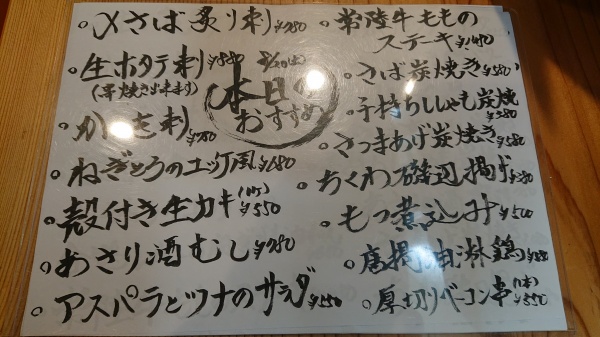 〆さば炙り刺 ¥780
生ホタテ刺 ¥880
(串焼き出来ます)
刺 ¥780
ねぎとろのユッケ風 ¥680
殻付き生カキ(1ケ) ¥550
あさり酒むし ¥780
アスパラとツナのサラダ ¥550
本日の
おすすめ
常陸牛ももの
ステーキ ¥1480
さば炭焼き ¥580
子持ちししゃも炭焼
さつまあげ炭焼き ¥580
ちくわ磯辺揚げ
もつ煮込み ¥500
唐揚 油淋鶏
厚切りベーコン串(1本) ¥550